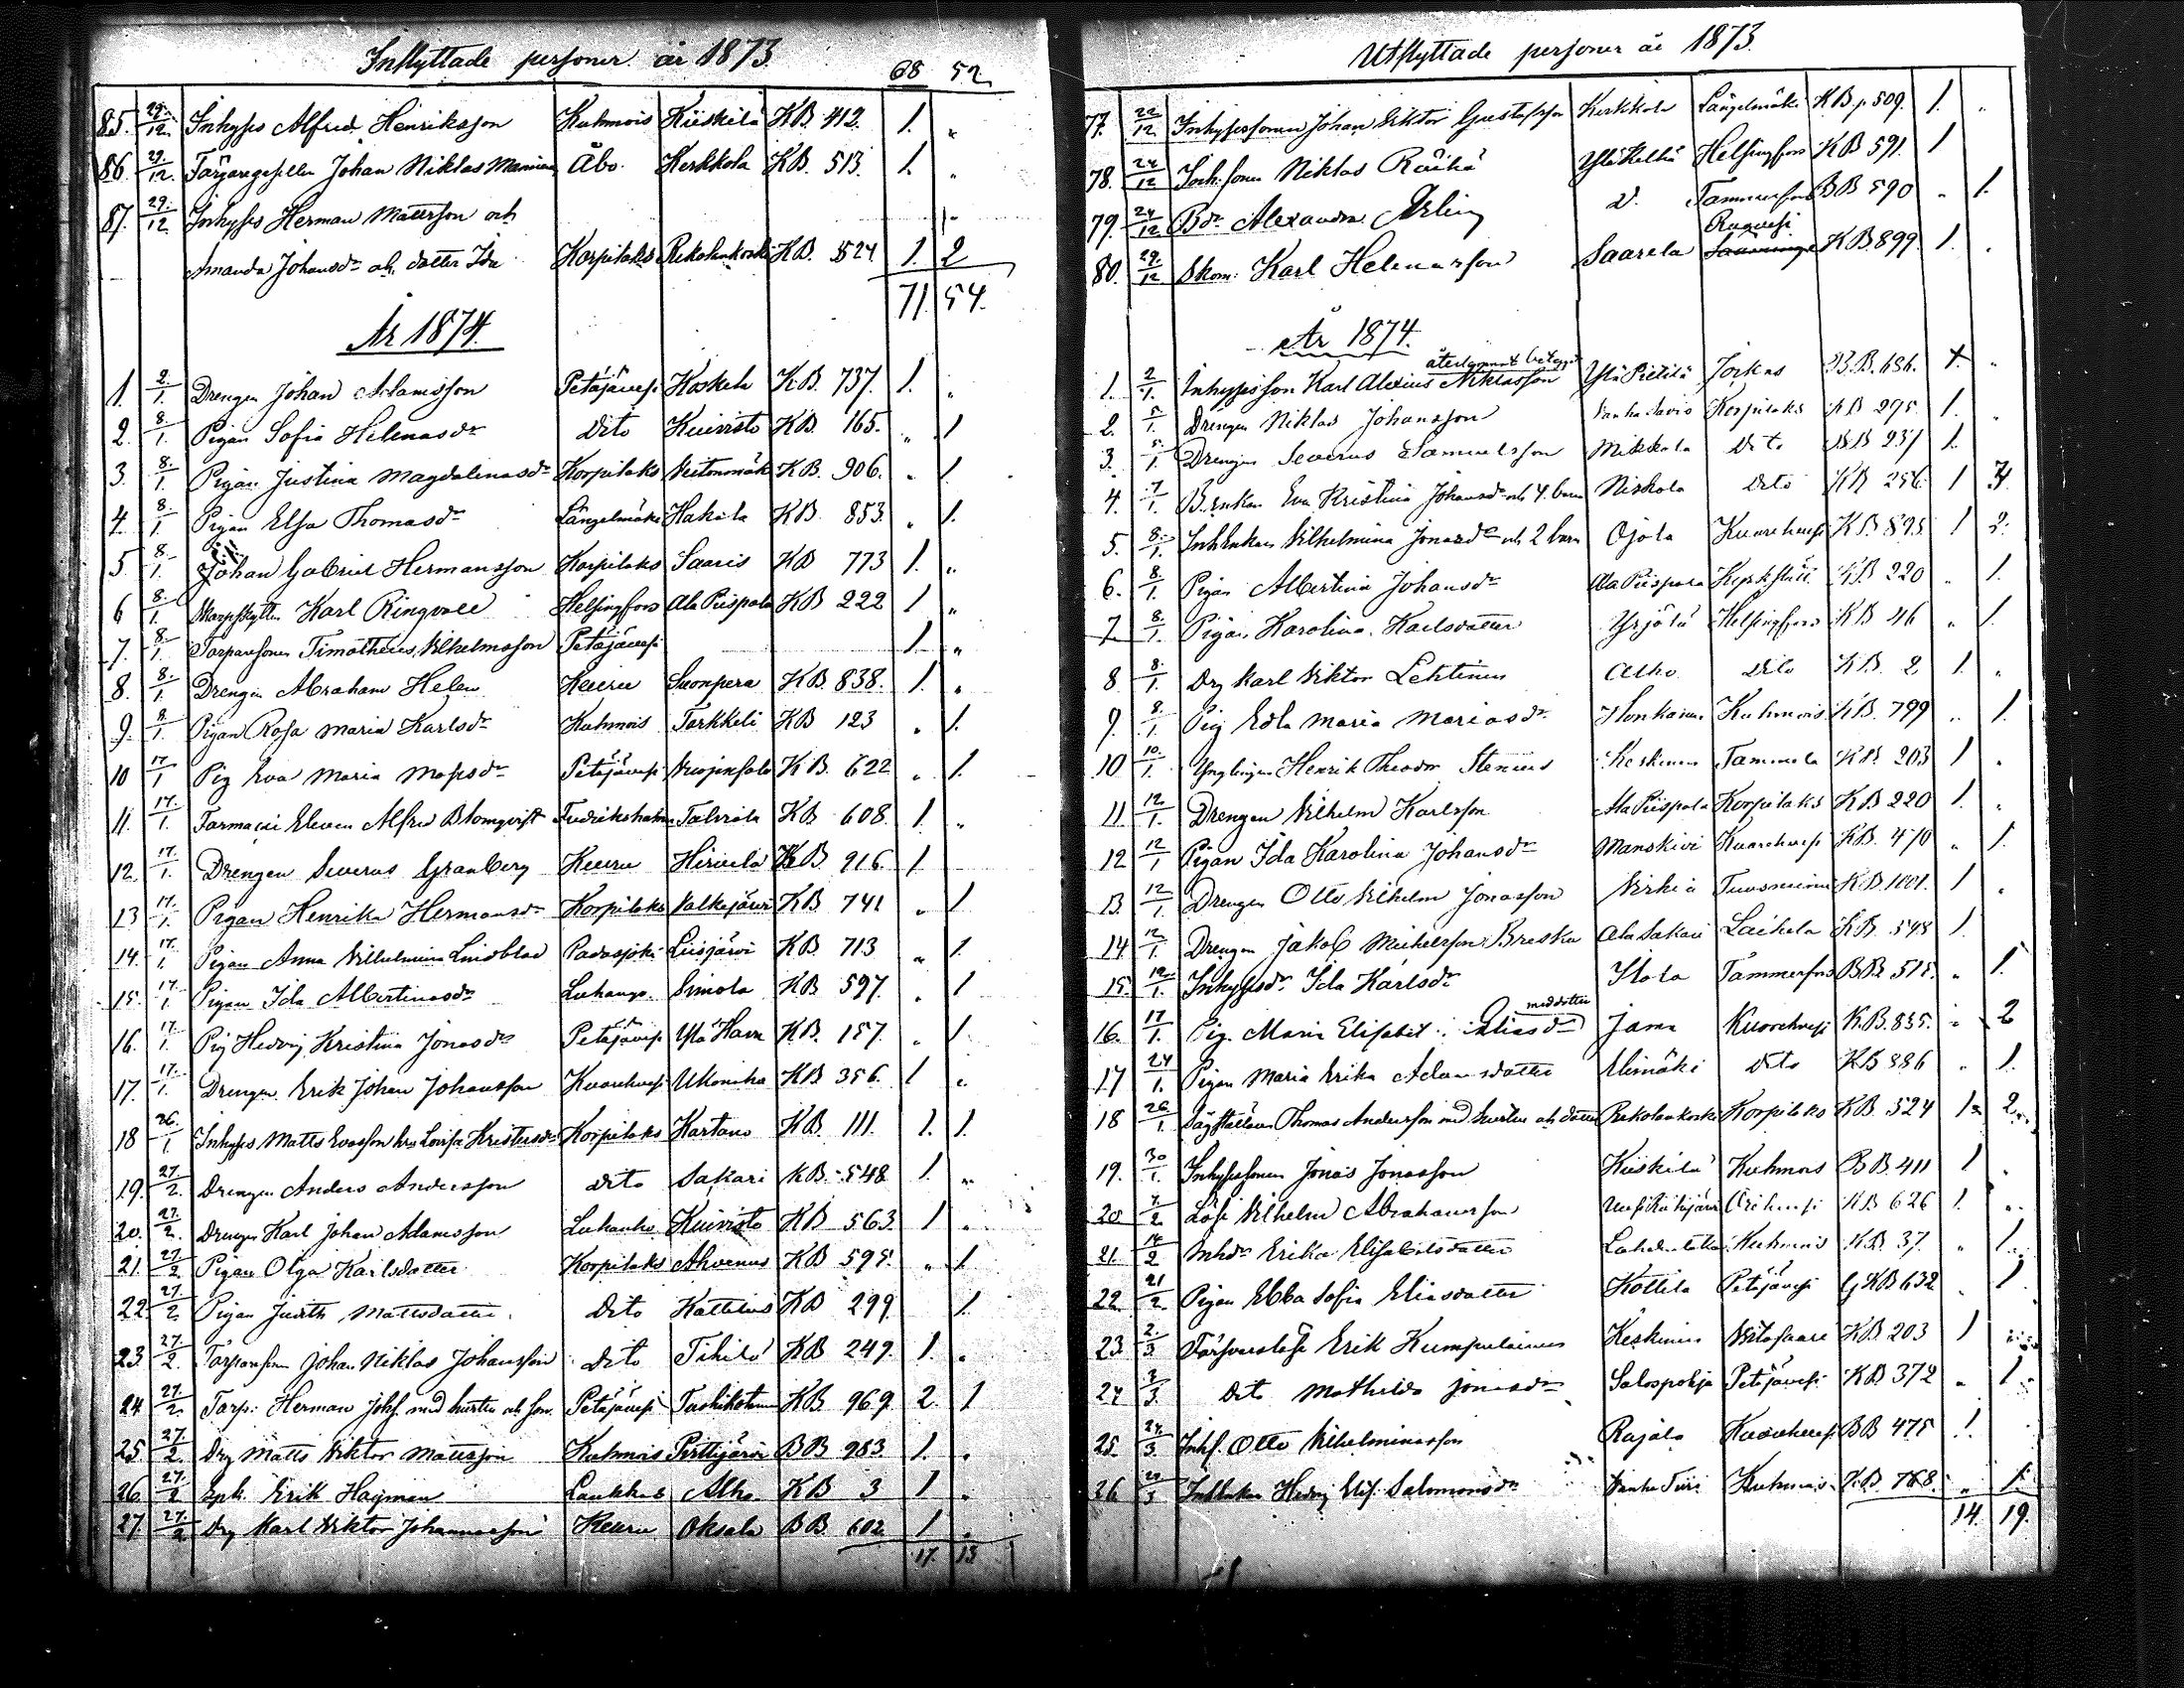 Inflyttade personer år 1873.
68 52
85. 29/12. Inhyses Alfred Henriksson Kuhmois Kiiskilä KB. 412. 1. "
86. 29/12. Färgaregesellen Johan Niklas Åbo. Kerkkola KB. 513. 1. "
87. 29/12 Inhyses Herman Mattsson och
Amanda Johansdr och dotter Ida Korpilaks Rekolankoski KB. 524 1. 2
71. 54.
År 1874.
1. 2/1. Drengen Johan Adamsson Petäjävesi Koskela KB. 737. 1. "
2. 8/1. Pigan Sofia Helenasdr Dito Kuivisto KB. 165. " 1
3. 8/1. Pigan Justina Magdalenasdr Korpilaks KB. 906. " 1.
4. 8/1. Pigan Elsa Thomasdr Längelmäki Hakila KB. 853. " 1.
5 8/1. Johan Gabriel Hermansson Korpilaks Saaris KB 773 1. "
6 8/1. Skarpskytten Karl Ringvall Helsingfors Ala Piispala KB 222 1 "
7. 8/1. Torparesonen Timotheus Vilhelmsson Petäjävesi 1. "
8. 8/1. Drengen Abraham Helen Keuru Suonpera KB. 838. 1. "
9. 8/1. Pigan Rosa Maria Karlsdr Kuhmois Tarkkila KB 123 " 1.
10 17/1 Pig Eva Maria Mossdr Petäjävesi KB. 622 " 1.
11. 17/1. Farmacie Eleven Alfred Blomqvist Fredrikshamn Talvola KB 608. 1. "
12. 17/1. Drengen Severus Granberg Keuru Hirvelä KB 916. 1
13 17/1. Pigan Henrika Hermansdr Korpilaks Valkejärvi KB. 741 " 1
14. 17/1. Pigan Anna Vilhelmina Lindblad Padasjoki Liisjärvi KB. 713 " 1.
15. 17/1 Pigan Ida Albertinasdr Luhango Simola KB 597. " 1
16. 17/1. Pig Hedvig Kristina Jonasdr Petäjävesi Ylä Hava KB. 157. " 1.
17. 17/1. Drengen Erik Johan Johansson Kuorehvesi Ukonika KB 356. 1 "
18 26/1 Inhyses Matts Evasson hus Lovisa Kristersdr Korpilaks Kartano KB. 111. 1. 1.
19. 27/2. Drengen Anders Andersson dito Sakari KB. 548 1. "
20. 27/2. Drengen Karl Johan Adamsson Luhanko Kuivisto KB 563 1 "
21. 27/2 Pigan Olga Karlsdotter Korpilaks Ahvenus KB 595. " 1.
22. 27/2. Pigan Judith Mattsdotter Dito Kattilus KB 299. 1.
23. 27/2. Torparesonen Johan Niklas Johansson Dito Tihilä KB 249. 1. "
24 27/2 Torp: Herman Johs. med hustru och son Petäjävesi KB 969. 2. 1
25. 27/2. Drg Matts Viktor Mattsson Kuhmois Perttijärvi BB 983. 1. "
26. 27/2 Erik Hagman Laukkas Alho KB 3 1 "
27. 27/2 Drg Karl Viktor Johannasson Keuru Oksala BB. 602 1 "
17. 13
Utflyttade personer år 1873.
77. 22/12 Inhysessonen Johan Viktor Gustafsson Kerkkola Längelmäki KB. p 509. 1. "
78. 24/12 Inh. sonen Niklas Räihä Yläkeltä Helsingfors KB 591. 1
79. 24/12 Bdr Alexandra D. Tammerfors BB 590 " 1.
Ruovesi
80. 29/12 Skom: Karl Helenasson Saarela KB 899. 1. "
År 1874.
återkommit
1. 2/1. Inhysesson Karl Alexius Niklasson Ylä Pietilä Jockas BB. 686. +. "
2. 5/1. Drengen Niklas Johansson Vanha Savio Korpilaks KB 295. 1. "
3. 5/1. Drengen Severus Samuelsson Mikkola Dito BB 237 1.
4. 7/1. B. Enkan Eva Kristina Johansdr och 4. barn Niskola Dito KB 256. 1 4
5. 8/1. Inh Enkan Vilhelmina Jonasdr och 2 barn Ojala Kuorehvesi KB 895. 1 2.
6. 8/1. Pigan Albertina Johansdr Ala Piispala KB 220 " 1.
7 8/1. Pigan Karolina Karlsdotter Yrjölä Helsingfors KB 46 " 1.
8 8/1. Drg Karl Viktor Lehtinen Alho Dito KB. 2 1. "
9. 8/1. Pig Edla Maria Mariasdr Honkanen Kuhmois KB. 799 " 1.
10 10/1. Ynglingen Henrik Theodor Stenius Keskinen Tammela KB 203 1 "
11. 12/1. Drengen Vilhelm Karlsson Ala Piispala Korpilaks KB 220 1. "
12 12/1 Pigan Ida Karolina Johansdr Manskivi Kuorehvesi KB. 470 " 1.
13. 12/1. Drengen Otto Vilhelm Jonasson KB. 1001. 1 "
14 12/1. Drengen Jakob Michelsson Ala Sakari Laihela KB. 548 1.
15. 12/1. Inhysesdr Ida Karlsdr Ylola Tammerfors BB. 515. " 1.
med dotter
16. 17/1. Pig. Maria Elisabet Eliasdr Jama Kuorehvesi KB. 835. " 2
17 24/1. Pigan Maria Erika Adamsdotter Elimäki Dito KB 886 " 1.
18 26/1. Thomas Andersson med hustru och dotter Rekolankoski Korpilaks KB. 524 1 2
19. 30/1 Inhysessonen Jonas Jonasson Kiiskilä Kuhmois BB. 411 1 "
20 Löse Vilhelm Abrahamsson KB 626 1. "
21. 14/2 Inhdr Erika Elisabetsdotter Kuhmois KB. 37. " 1.
22. 21/2. Pigan Ebba Sofia Eliasdotter Kottila Petäjävesi KB 632 " 1
23. 2/3 Erik Kumpulainen Keskinen Viitasaari KB 203 1 "
24. 2/3. Dito Mathilda Jonasdr Salospohja Petäjävesi KB. 372 " 1.
25. 24/3. Inhs. Otto Vilhelminasson Rajala Kuorehvesi BB 475 1.
26. Hedvig Elis. Salomonsdr Vanha Kuhmois KB. 768. " 1.
14. 19.